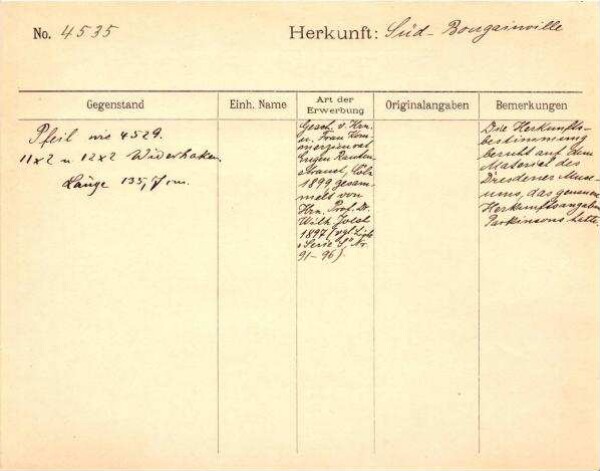 No. 4535
Herkunft: Süd-Bougainville
Gegenstand
Einh. Name
Art der
Erwerbung
Originalangaben
Bemerkungen
Pfeil wie 4529.
11x2 u 12x2 Widerhaken
Länge 135,7 cm.
Gesch. v. Hrn.
u. Frau Kom-
merzienrat
Eugen Rauten-
strauch, Cöln
1899, gesam-
melt von
Hrn. Prof. Dr.
Wilh. Joest
1897 (vgl. Liste
Serie S. Nr.
91-96).
Die Herkunfts-
bestimmung
beruht auf dem
Material des
Dresdener Muse-
ums, das genaue
Herkunftsangaben
Parkinsons hatte.